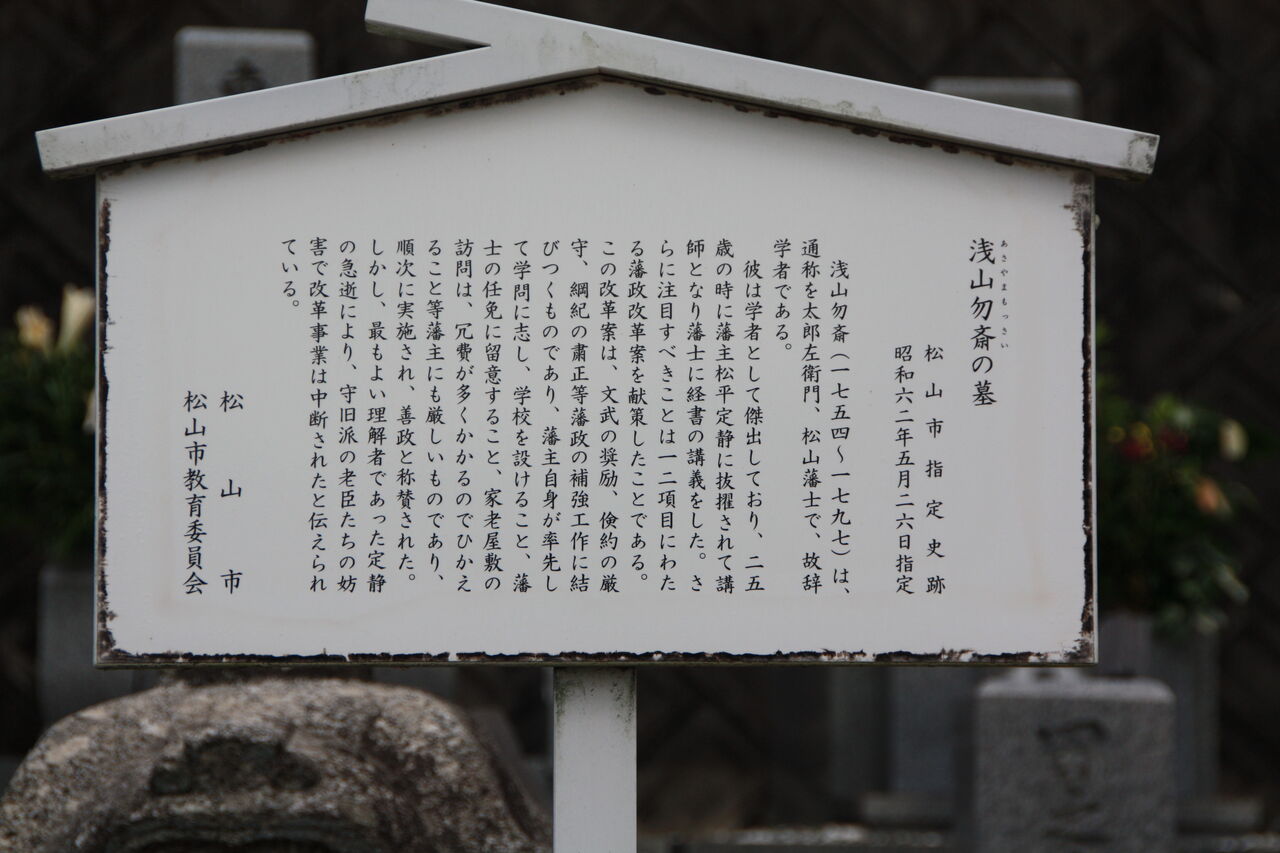 浅山勿斎の墓
あさやまもっさい
松山市指定史跡
昭和六二年五月二六日指定
浅山勿斎（一七五四～一七九七）は、
通称を太郎左衛門、松山藩士で、故辞
学者である。
彼は学者として傑出しており、二五
歳の時に藩主松平定静に抜擢されて講
師となり藩士に経書の講義をした。さ
らに注目すべきことは一二項目にわた
る藩政改革案を献策したことである。
この改革案は、文武の奨励、倹約の厳
守、綱紀の粛正等藩政の補強工作に結
びつくものであり、藩主自身が率先し
て学問に志し、学校を設けること、藩
士の任免に留意すること、家老屋敷の
訪問は、冗費が多くかかるのでひかえ
ること等藩主にも厳しいものであり、
順次に実施され、善政と称賛された。
しかし、最もよい理解者であった定静
の急逝により、守旧派の老臣たちの妨
害で改革事業は中断されたと伝えられ
ている。
松山市
松山市教育委員会